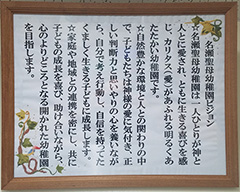 名瀬聖母幼稚園ビジョン
名瀬聖母幼稚園は一人ひとりが神と
人とに愛され、ともに生きる喜びを感
じ、カリタス(愛)があふれる明るくあ
たたかい幼稚園です。
☆自然豊かな環境と人との関わりの中
で、子どもたちは神様の愛に気付き、正
しい判断力と思いやりの心を養いなが
ら、自分で考え行動し、自信を持ってた
くましく生きる子どもに成長します。
☆家庭や地域との連携を密にし、共に
子どもの成長を喜び、助け合いながら、
心のよりどころとなる開かれた幼稚園
を目指します。